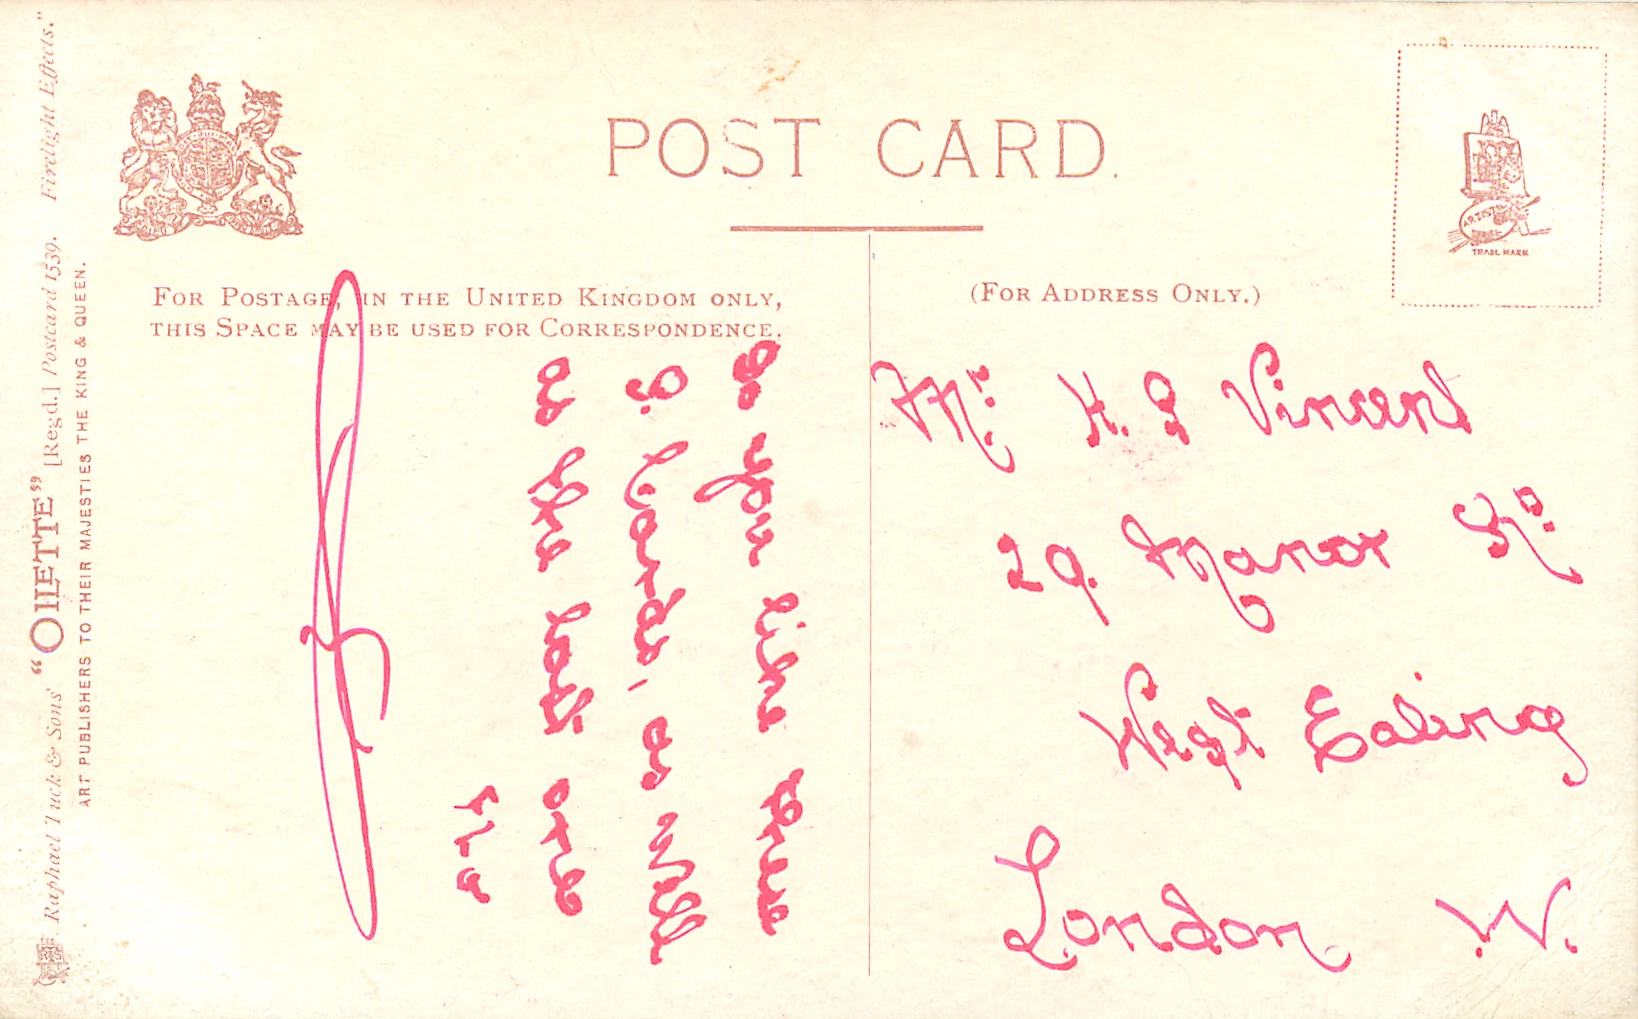 POST CARD.
FOR POSTAGE, IN THE UNITED KINGDOM ONLY,
THIS SPACE MAY BE USED FOR CORRESPONDENCE.
(FOR ADDRESS ONLY.)
ARTISTIC SERIES
TRADE MARK
Do you like these
P. Cards, as well
as the last one
Mr. H. G Vincent
29. Manor Rd.
West Ealing
London. W.
Raphael Tuck & Sons' "OILETTE" [Regd.] Postcard 1539. Firelight Effects."
ART PUBLISHERS TO THEIR MAJESTIES THE KING & QUEEN.